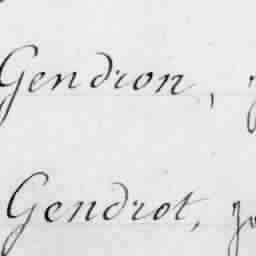 Gendron,
Gendrot,